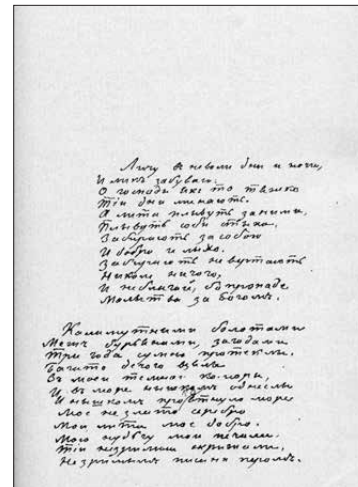 Личу в неволи дни и ночи,
И личъ забуваю.
О господи якъ то тяжко
Тіи дни минаютъ.
А лита плывутъ за ними,
Плывутъ соби стыха,
Забираютъ за собою
И добро и лыхо.
Забираютъ не вертаютъ
Николы ничого,
И не благай, бо пропаде
Молытва за богомъ.
Каламутными болотами
Межъ бурьянами, за годами
Три года сумно протеклы.
Багато дечого взялы
Зъ моеи темнои коморы,
И въ море нышкомъ однеслы
И нышкомъ море
Мое не злато серебро
Мои лита мое добро.
Мою нудьгу мои печали.
Тіи незримыи скрижали,
Незримымъ писани перомъ.